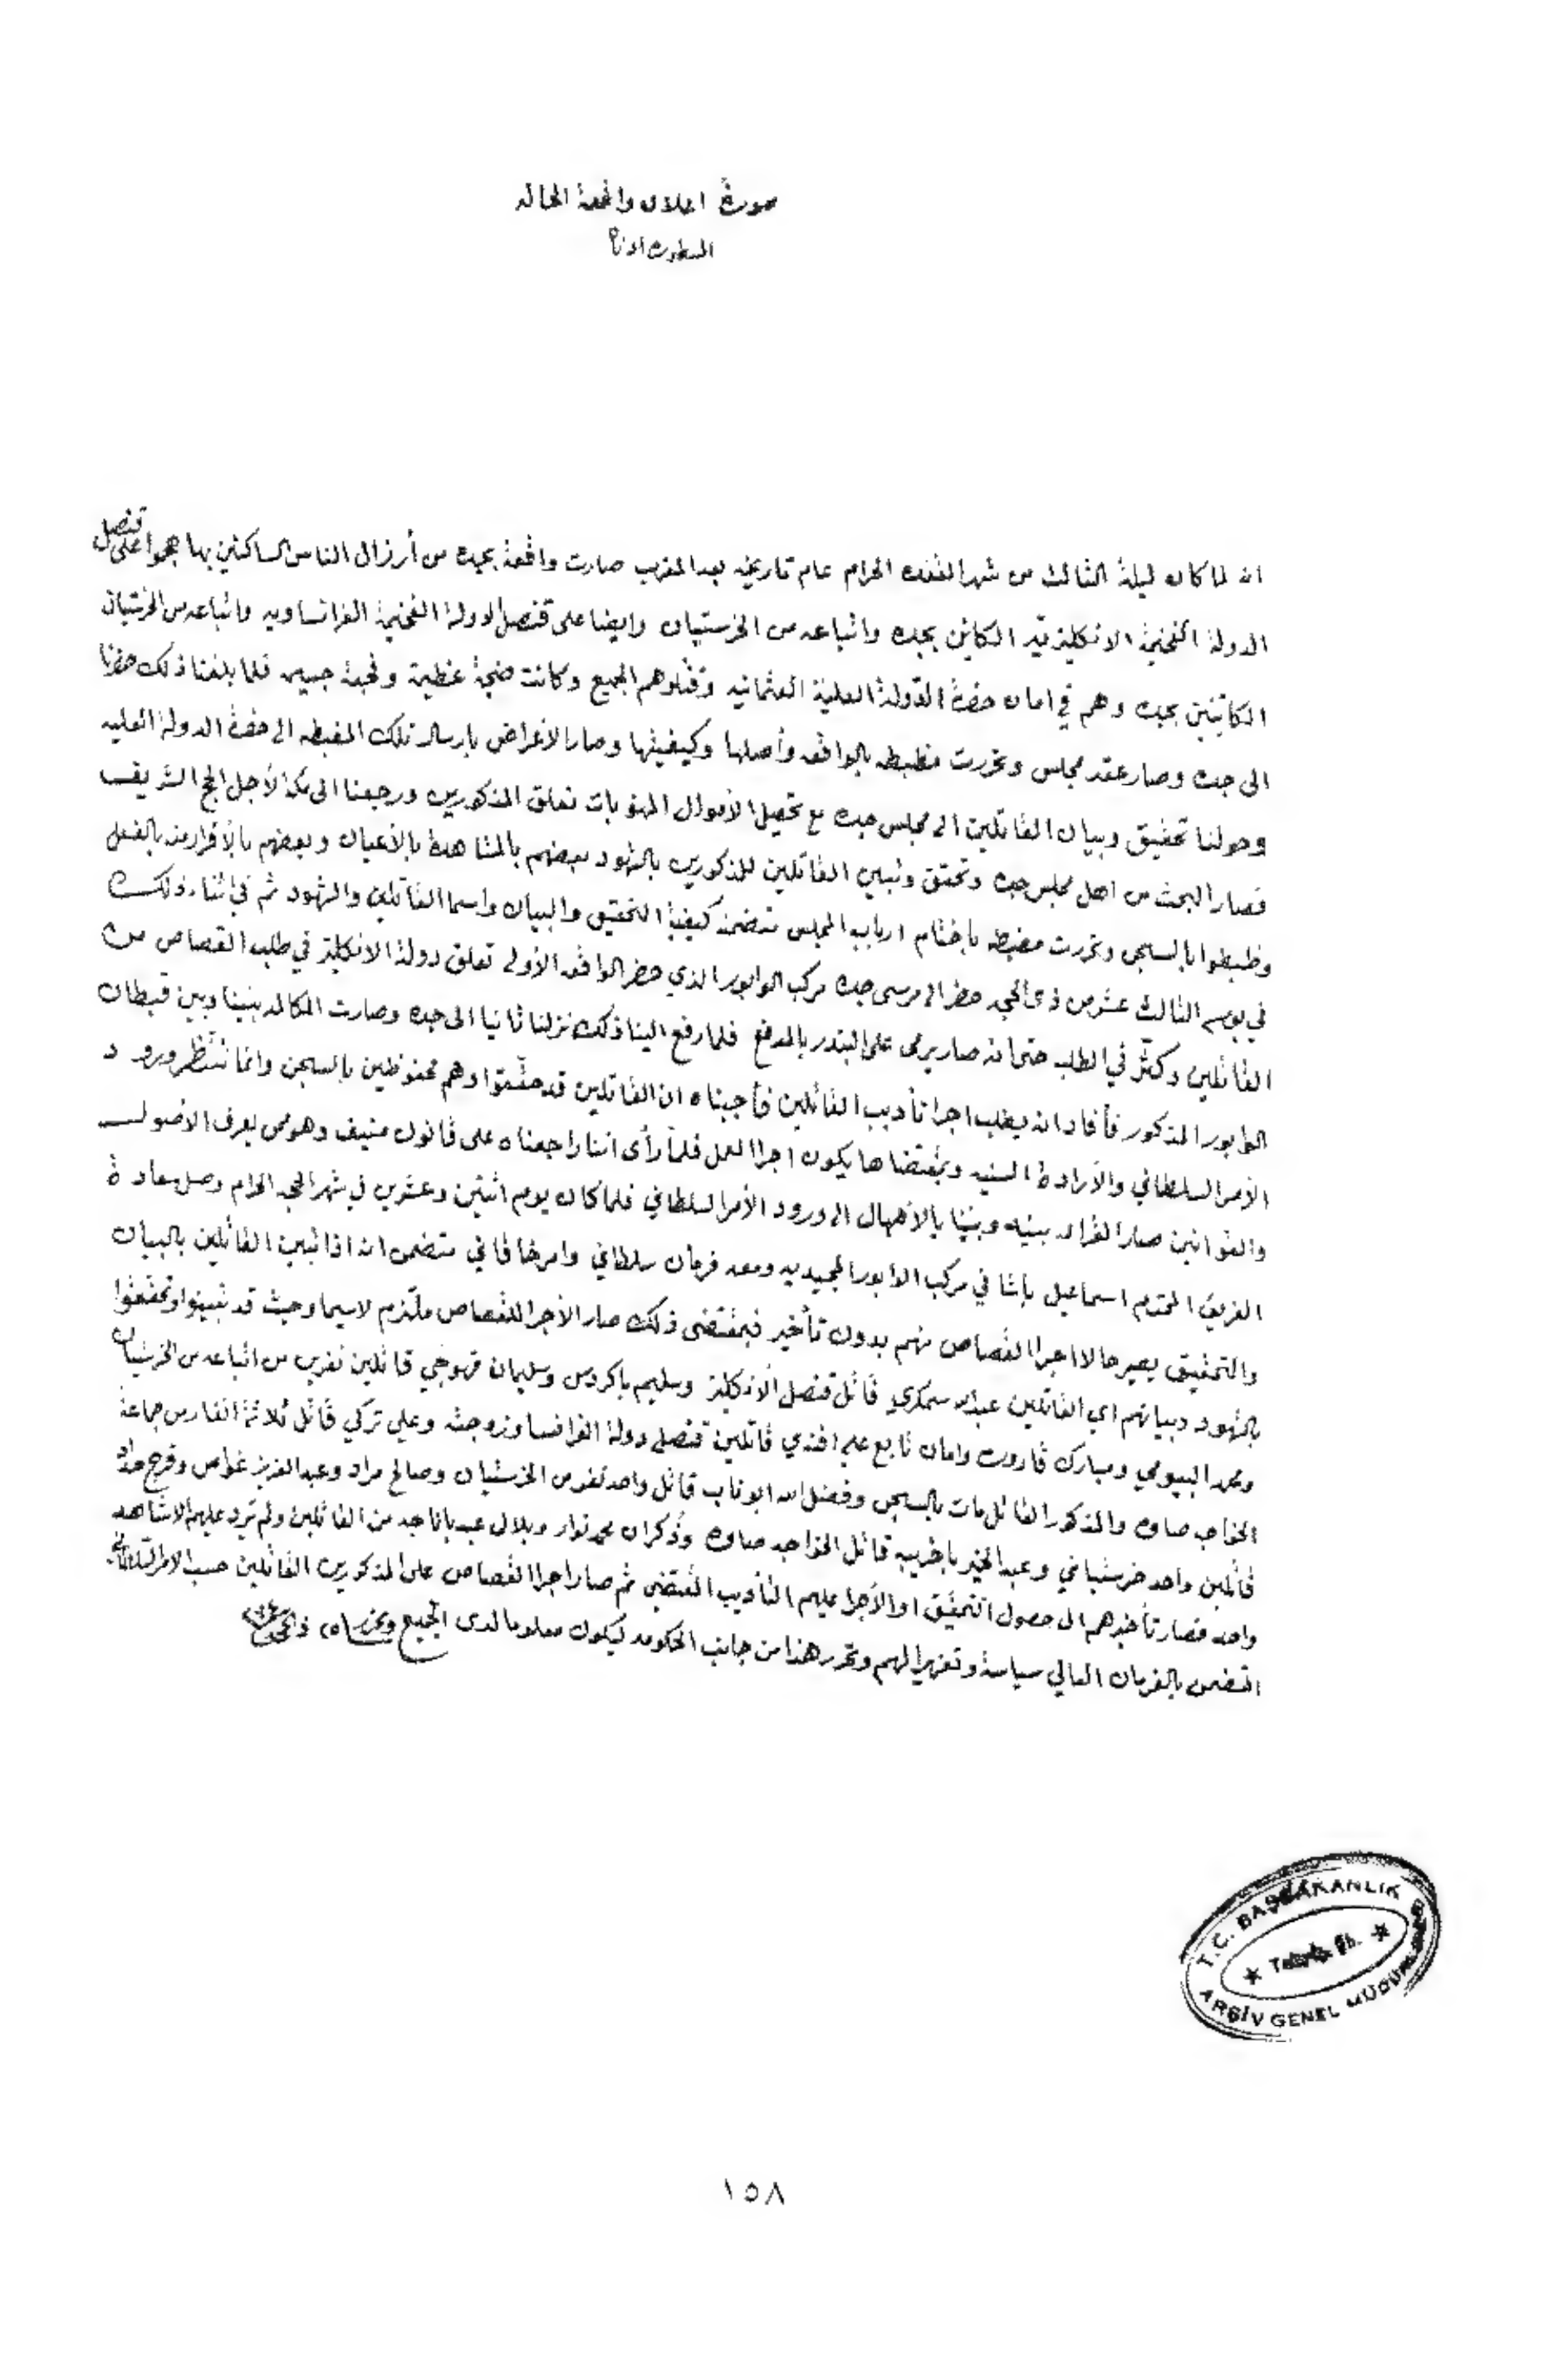 صورة اعلان واقعة الحاله
المسطورة أدناه
انه لما كان ليلة الثالث من شهر القعده الحرام عام تاريخه بعد المغرب صارت واقعة بجده من أرزال الناس الساكنين بها هجموا على قنصل
الدولة الفخيمة الانكليزيّه الكائن بجده واتباعه من الخرستيان وايضا على قنصل الدولة الفخيمة الفرانساويه واتباعه من الخرستيان
الكائنين بجده وهم في امان حضرة الدّولة العليّة العثمانيه وقتلوهم الجميع وكانت ضجة عظيمة وفجعة جسيمه فلما بلغنا ذلك حضرنا
الى جده وصار عقد مجلس وتحررت مظبطه بالواقعه وأصلها وكيفيتها وصار الاعراض بإرسال تلك المضبطه الى حضرة الدولة العليه
وحولنا تحقيق وبيان القاتلين الى مجلس جده مع تحصيل الأموال المنهوبات تعلق المذكورين ورجعنا الى مكة لأجل الحج الشريف
فصار البحث من اهل مجلس جده وتحقق وتبين القاتلين للمذكورين بالشهود بعضهم بالمشاهدة بالأعيان وبعضهم بالأقرار منه بالفعل
وظبطوا بالسجن وتحررت مضبطه باختام ارباب المجلس متضمنة كيفية التحقيق والبيان واسما القاتلين والشهود ثم في اثناء ذلك
في يوم الثالث عشر من ذي الحجه حضر الى مرسى جده مركب الوابور الذي حضر الواقعه الأولى تعلق دولة الانكليز في طلب القصاص من
القاتلين وكثّر في الطلب حتى انه صار يرمى على البندر بالمدفع فلما رفع الينا ذلك نزلنا ثانيا الى جده وصارت المكالمه بيننا وبين قبطان
الوابور المذكور فأفاد انه يطلب اجرا تأديب القاتلين فأجبناه ان القاتلين قد حققوا وهم محفوظين بالسجن وانما ننتظر ورود
الأمر السلطاني والأرادة السنيه وبمقتضاها يكون اجرا العمل فلما رأى اننا راجعناه على قانون منيف وهو ممن يعرف الاصول
والقوانين صار القرار بينه وبيننا بالأمهال الى ورود الأمر السلطاني فلما كان يوم اثنين وعشرين في شهر الحجه الحرام وصل سعادة
الفريق المحترم اسماعيل باشا في مركب الوابور المجيديه ومعه فرمان سلطاني وامر خاقاني متضمن انه اذا تبين القاتلين بالبيان
والتحقيق يصير حالا اجرا القصاص منهم بدون تأخير فبمقتضى ذلك صار الأجرا للقصاص ملتزم لاسيما وحيث قد تبينوا وتحققوا
بالشهود وبيانهم اي القاتلين عبدالله سمكري قاتل قنصل الأنكليز وسليم باكردس وسليمان قهوجي قاتلين نفرين من اتباعه من الخرستيان
ومحمد البيومي ومبارك قاروت وامان تابع علي افندي قاتلين قنصل دولة الفرانسا وزوجته وعلي تركي قاتل ثلاثة انفار من جماعة
الخواجه صاوه والمذكور القاتل مات بالسجن وفضل الله ابو ناب قاتل واحد نفر من الخرستيان وصالح مراد وعبدالعزيز غواص وفرج حداد
قاتلين واحد خرستياني وعبدالخير باخريبه قاتل الخواجه صاوه وذكران محمد نوار وبلال عبد باناجه من القاتلين ولم ترد عليهم الا شاهد
واحد فصار تأخيرهم الى حصول التحقيق او الأجرا عليهم التأديب المقتضى ثم صار اجرا القصاص على المذكورين القاتلين حسب الامر السلطاني
المتضمن بالفرمان العالي سياسة وتعزيرا لهم وتحرر هذا من جانب الحكومه ليكون معلوما لدى الجميع وتحرر ٢٥ ذالحجه
T.C. BAŞBAKANLIK
ARŞİV GENEL MÜDÜR
١٥٨